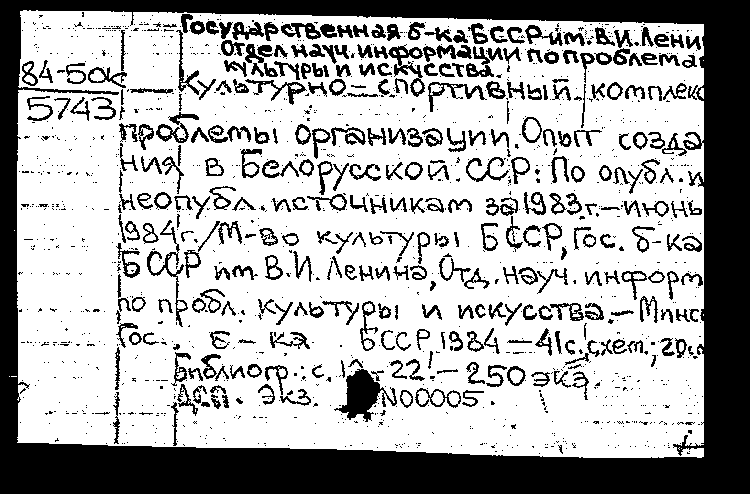 Государственная б-ка БССР им. В.И. Лени
Отдел науч. информации по проблема
культуры и искусства.
84-50к
5743
Культурно-спортивный комплекс
проблемы организации. Опыт созда
ния в Белорусской ССР: По опубл. и
неопубл. источникам за 1983г.-июнь
1984г./М-во культуры БССР, Гос. б-ка
БССР им. В.И. Ленина, Отд. науч. информ
по пробл. культуры и искусства.-Минск
Гос. б-ка БССР, 1984-41с. схем.; 20см
Библиогр.: с. -22.-250 экз.
ДСП. Экз. N00005.